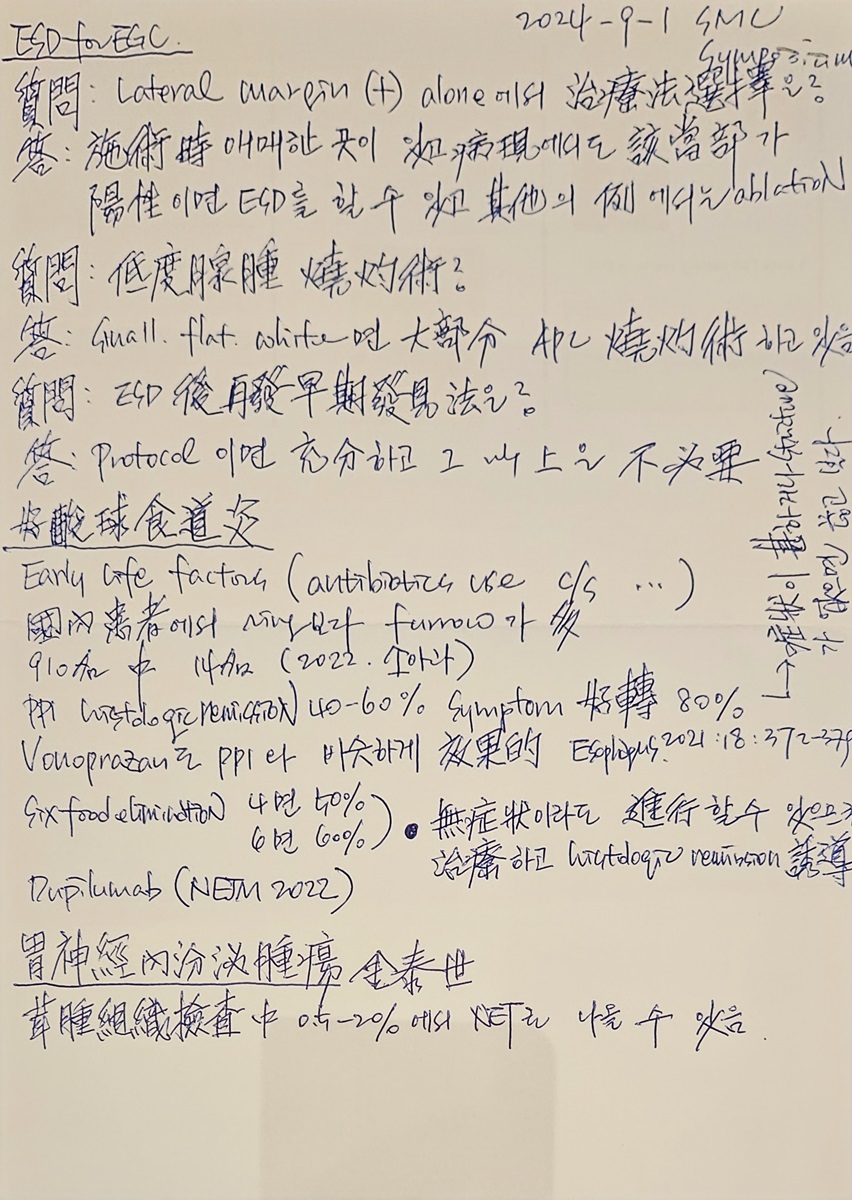 2024-9-1 SMC
Symposium
ESD for EGC.
質問: Lateral margin (+) alone에서 治療法選擇은?
答: 施術時 애매한 곳이 있고 病理에서도 該當部가
陽性이면 ESD를 할 수 있고 其他의 例에서는 ablation
質問: 低度腺腫 燒灼術?
答: Small. flat. white면 大部分 APC 燒灼術하고 있음
質問: ESD 後 再發 早期發見法은?
答: Protocol 이면 充分하고 그 以上은 不必要
好酸球食道炎
Early life factors (antibiotics use c/s ...)
國內患者에서 ring보다 furrow가 多
910名 中 14名 (2022.
PPI histologic remission 40-60% Symptom 好轉 80%
→症狀이 하거나 stricture
가 않고 하다.
Vonoprazan도 PPI와 비슷하게 效果的 Esophagus. 2021:18:372-379
Six food elimination 4면 50%
6면 60%
• 無症狀이라도 進行할 수 있으므로
治療하고 histologic remission 誘導
Dupilumab (NEJM 2022)
胃神經內分泌腫瘍 金泰世
茸腫組織檢查中 0.5-2%에서 NET로 나올 수 있음.